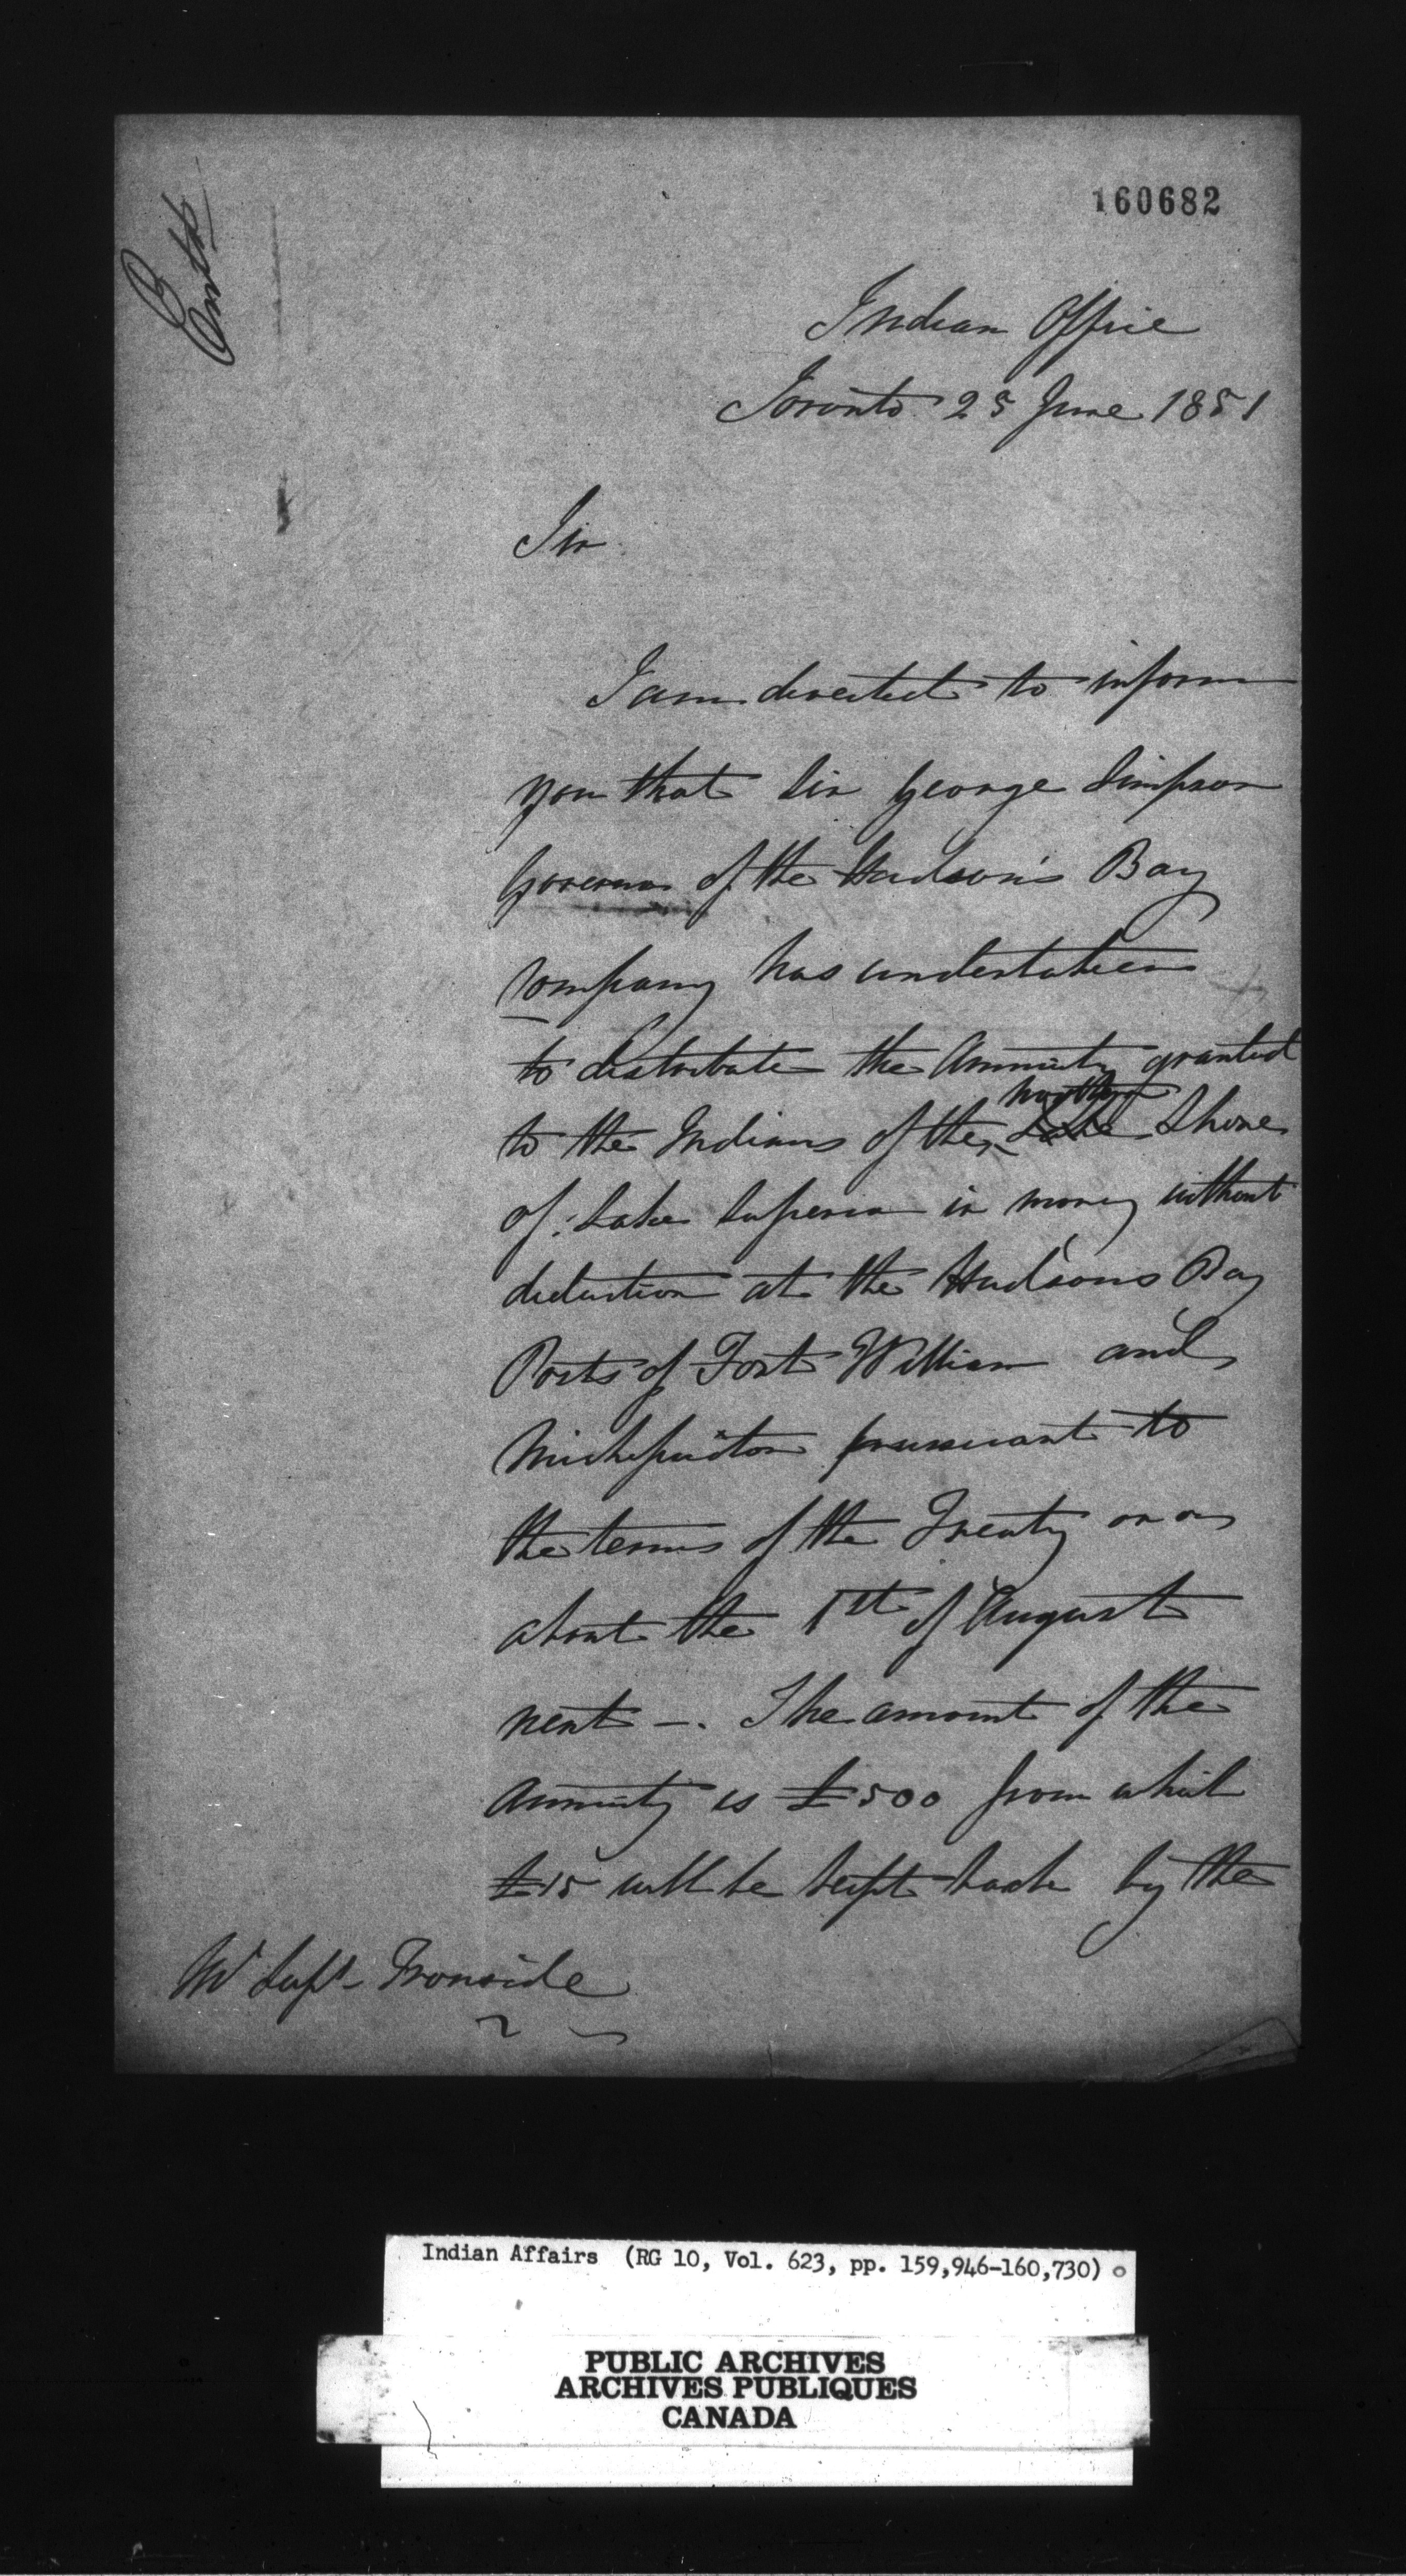 160682
Entd
Indian Office
Toronto 25 June 1851
Sir
I am directed to inform
you that Sir George Simpson
Governor of the Hudson's Bay
Company has undertaken
to distribute the Annuity granted
to the Indians of the northern Lake Shore
of Lake Superior in money without
deduction at the Hudsons Bay
Posts of Fort William and
Michipicton pursuant to
the terms of the Treaty on or
about the 1st of August
next -. The amount of the
annuity is £500 from which
£15 will be kept back by the
Mr Supt Ironside
Indian Affairs (RG 10, Vol. 623, pp. 159,946-160,730)
PUBLIC ARCHIVES
ARCHIVES PUBLIQUES
CANADA